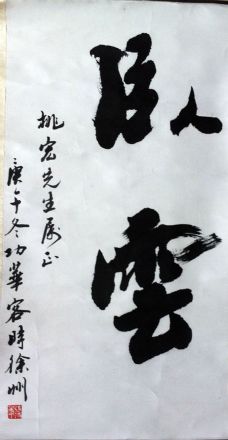 臥雲
桃宏先生属正
庚午冬功華客時徐州